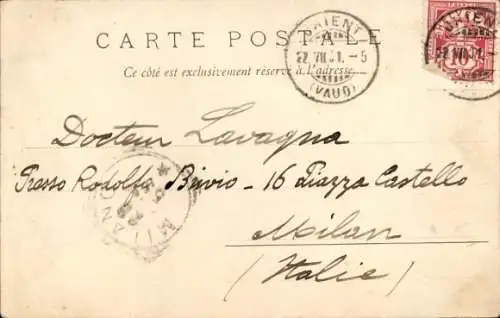 CARTE POSTALE
Ce côté est exclusivement réservé à l'adresse
(VAUD)
Docteur Lavagna
Presso Rodolfo Brivio - 16 Piazza Castello
Milan
(Italie)